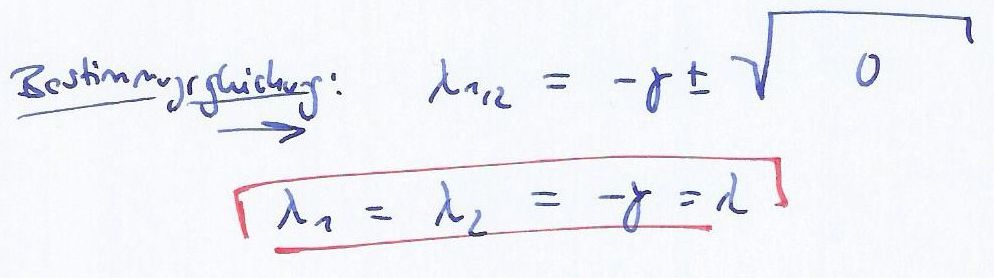 Bestimmungsgleichung: λ₁,₂ = -γ ± √0
λ₁ = λ₂ = -γ = λ